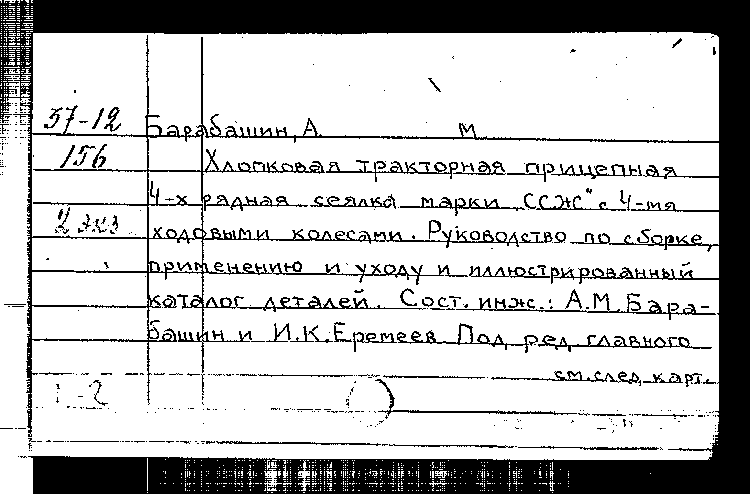 57-12
Барабашин, А М
156
Хлопковая тракторная прицепная
4-х рядная сеялка марки „ССЖС" с 4-мя
2 экз
ходовыми колесами. Руководство по сборке,
применению и уходу и иллюстрированный
каталог деталей. Сост. инж.: А.М. Бара-
башин и И.К. Еремеев Под ред главного
см. след карт.
1-2